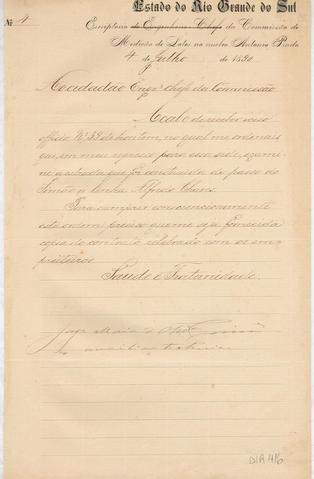 Estado do Rio Grande do Sul
Nº 4 Escriptorio do Engenheiro Chefe da Commissão de
Medição de Lotes na
4 de Julho de 1890
Ao cidadão Engº Chefe da Commissão
Acabo de receber vosso
officio Nº 39 de hontem, no qual me ordenais
que, em meu regresso para essa séde, exami-
ne a estrada que foi construida do passo do
Simão á linha Alfredo Chaves.
Para cumprir conscienciosamente
esta ordem preciso que me seja fornecida
copia do contracto celebrado com os em-
preiteiros
Saude e Fraternidade.
José Maia
auxiliar technico
DIR 416